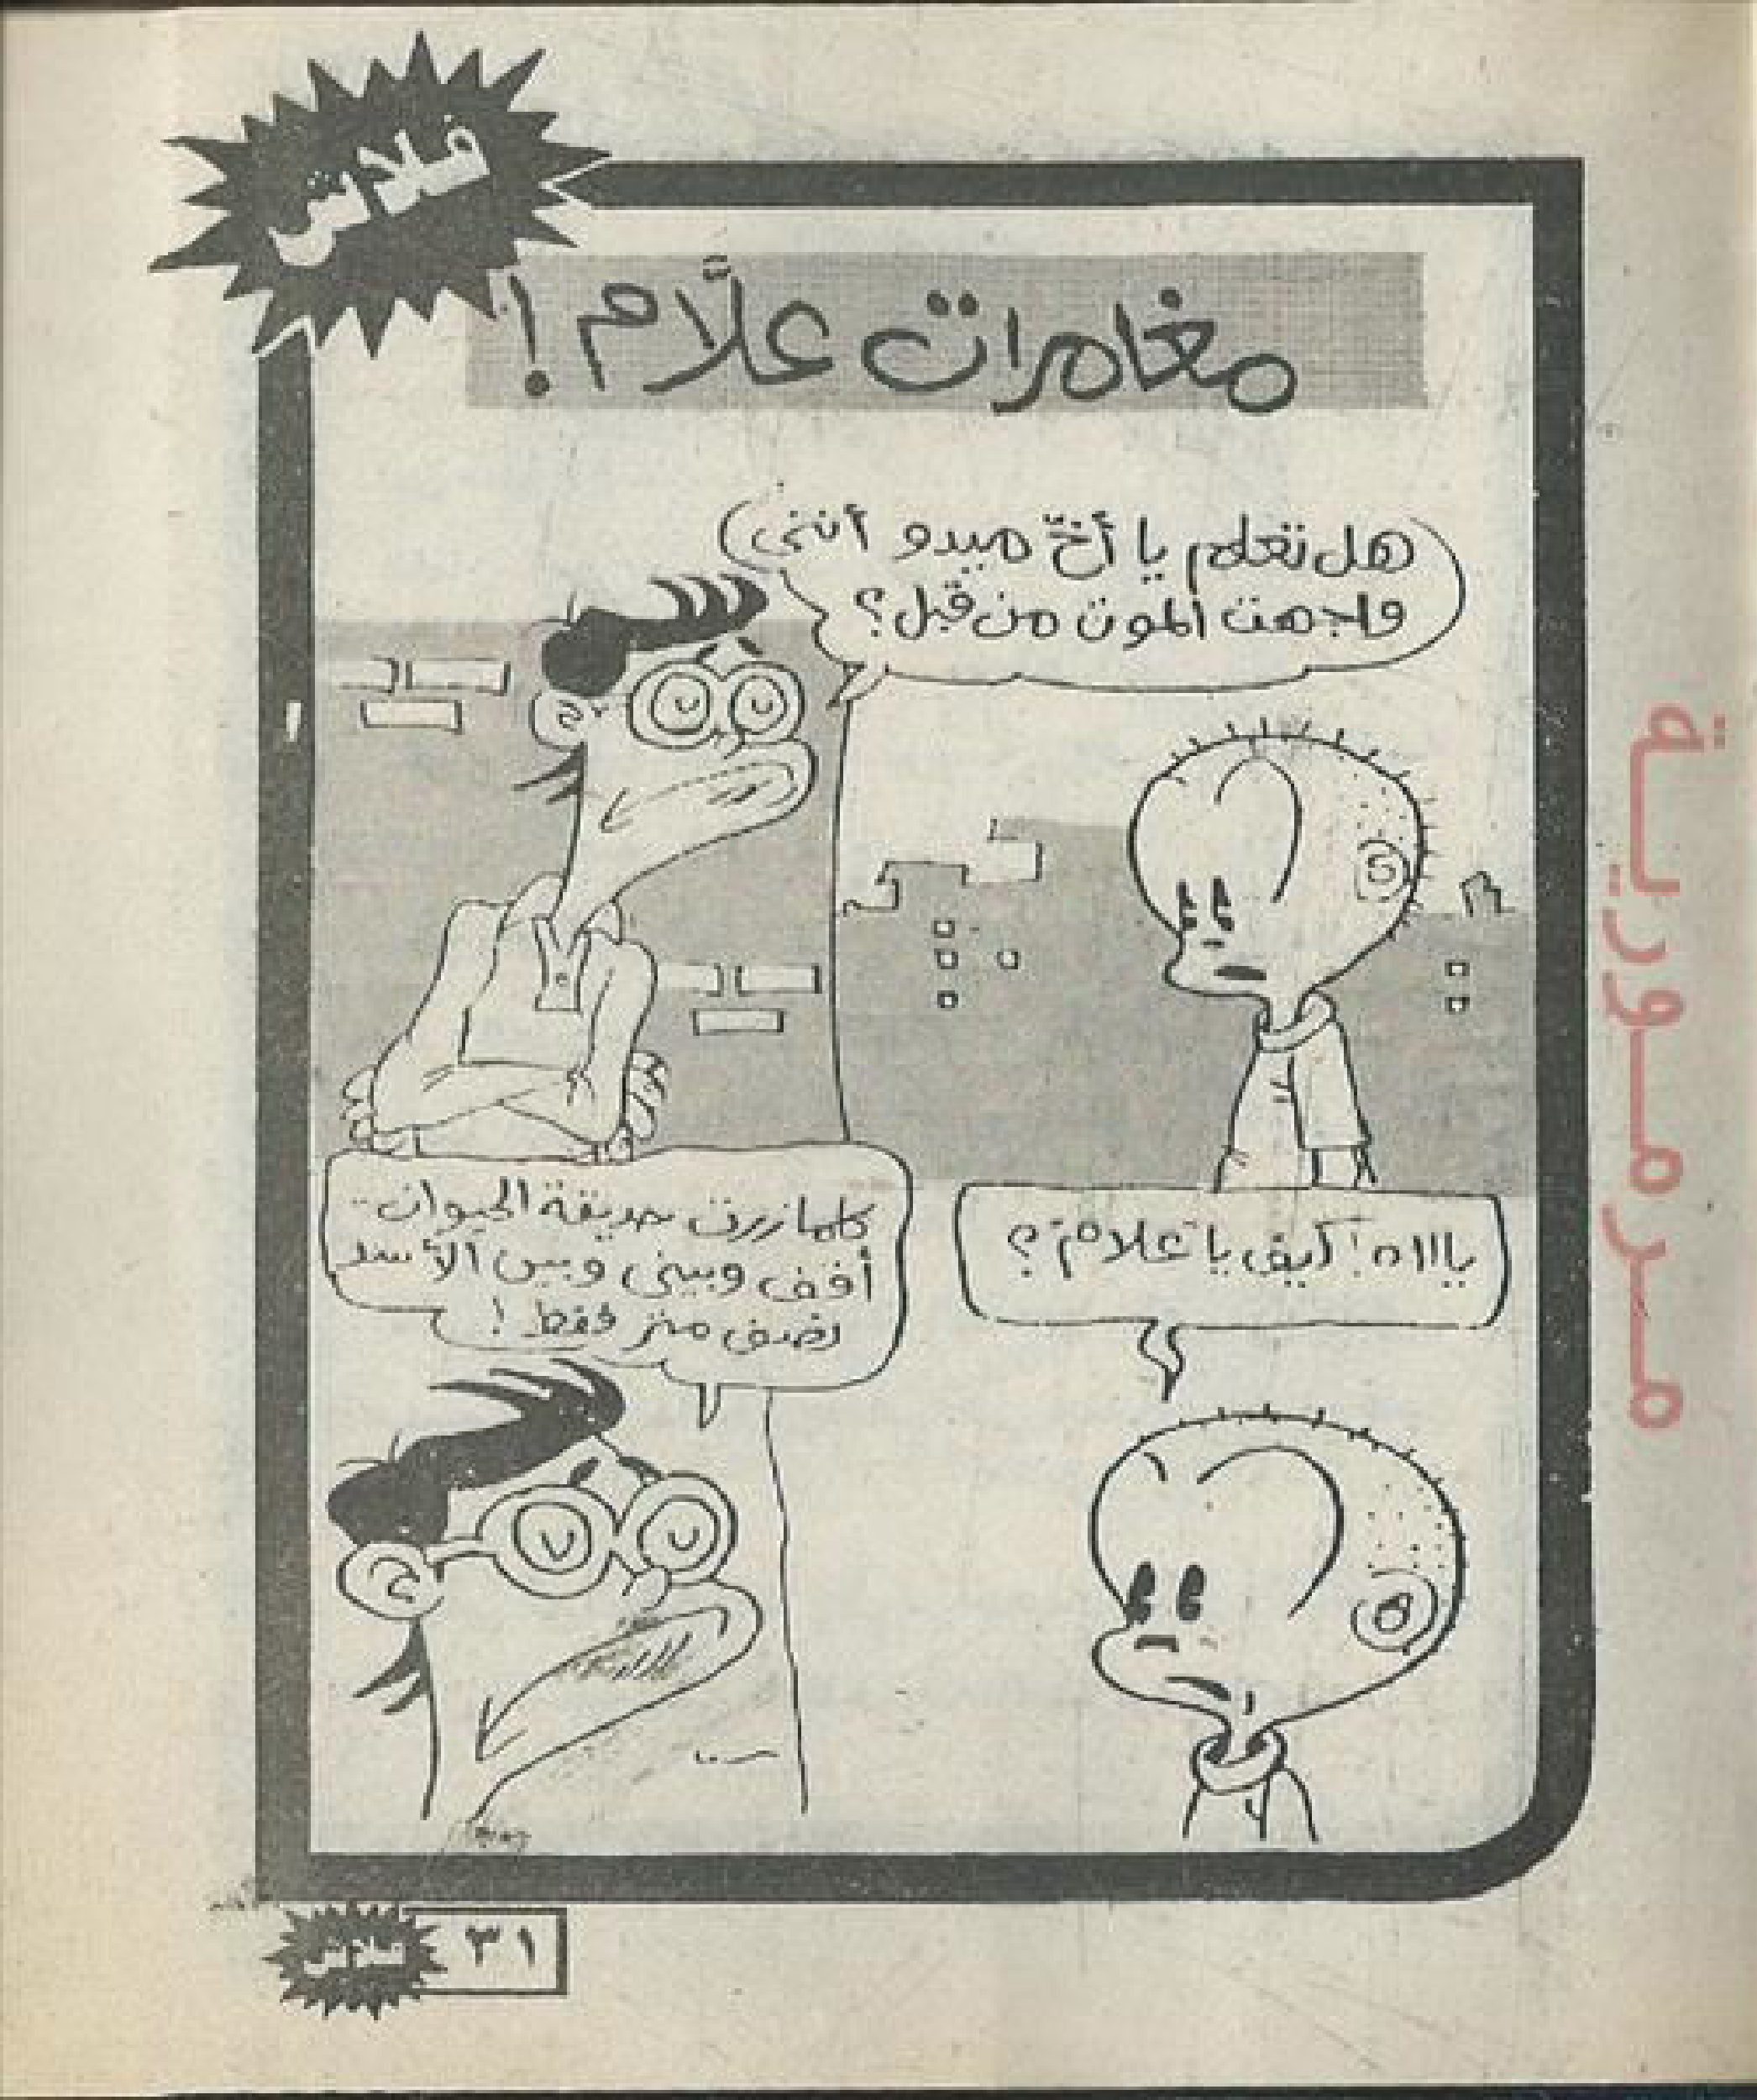 فلاش
مغامرات علَّام!
هل تعلم يا أخّ ميدو أننى
واجهت الموت من قبل؟
ياااه! كيف يا علام؟
كلما زرت حديقة الحيوان..
أقف وبينى وبين الأسد
نصف متر فقط!
مرمورية
٣١
فلاش